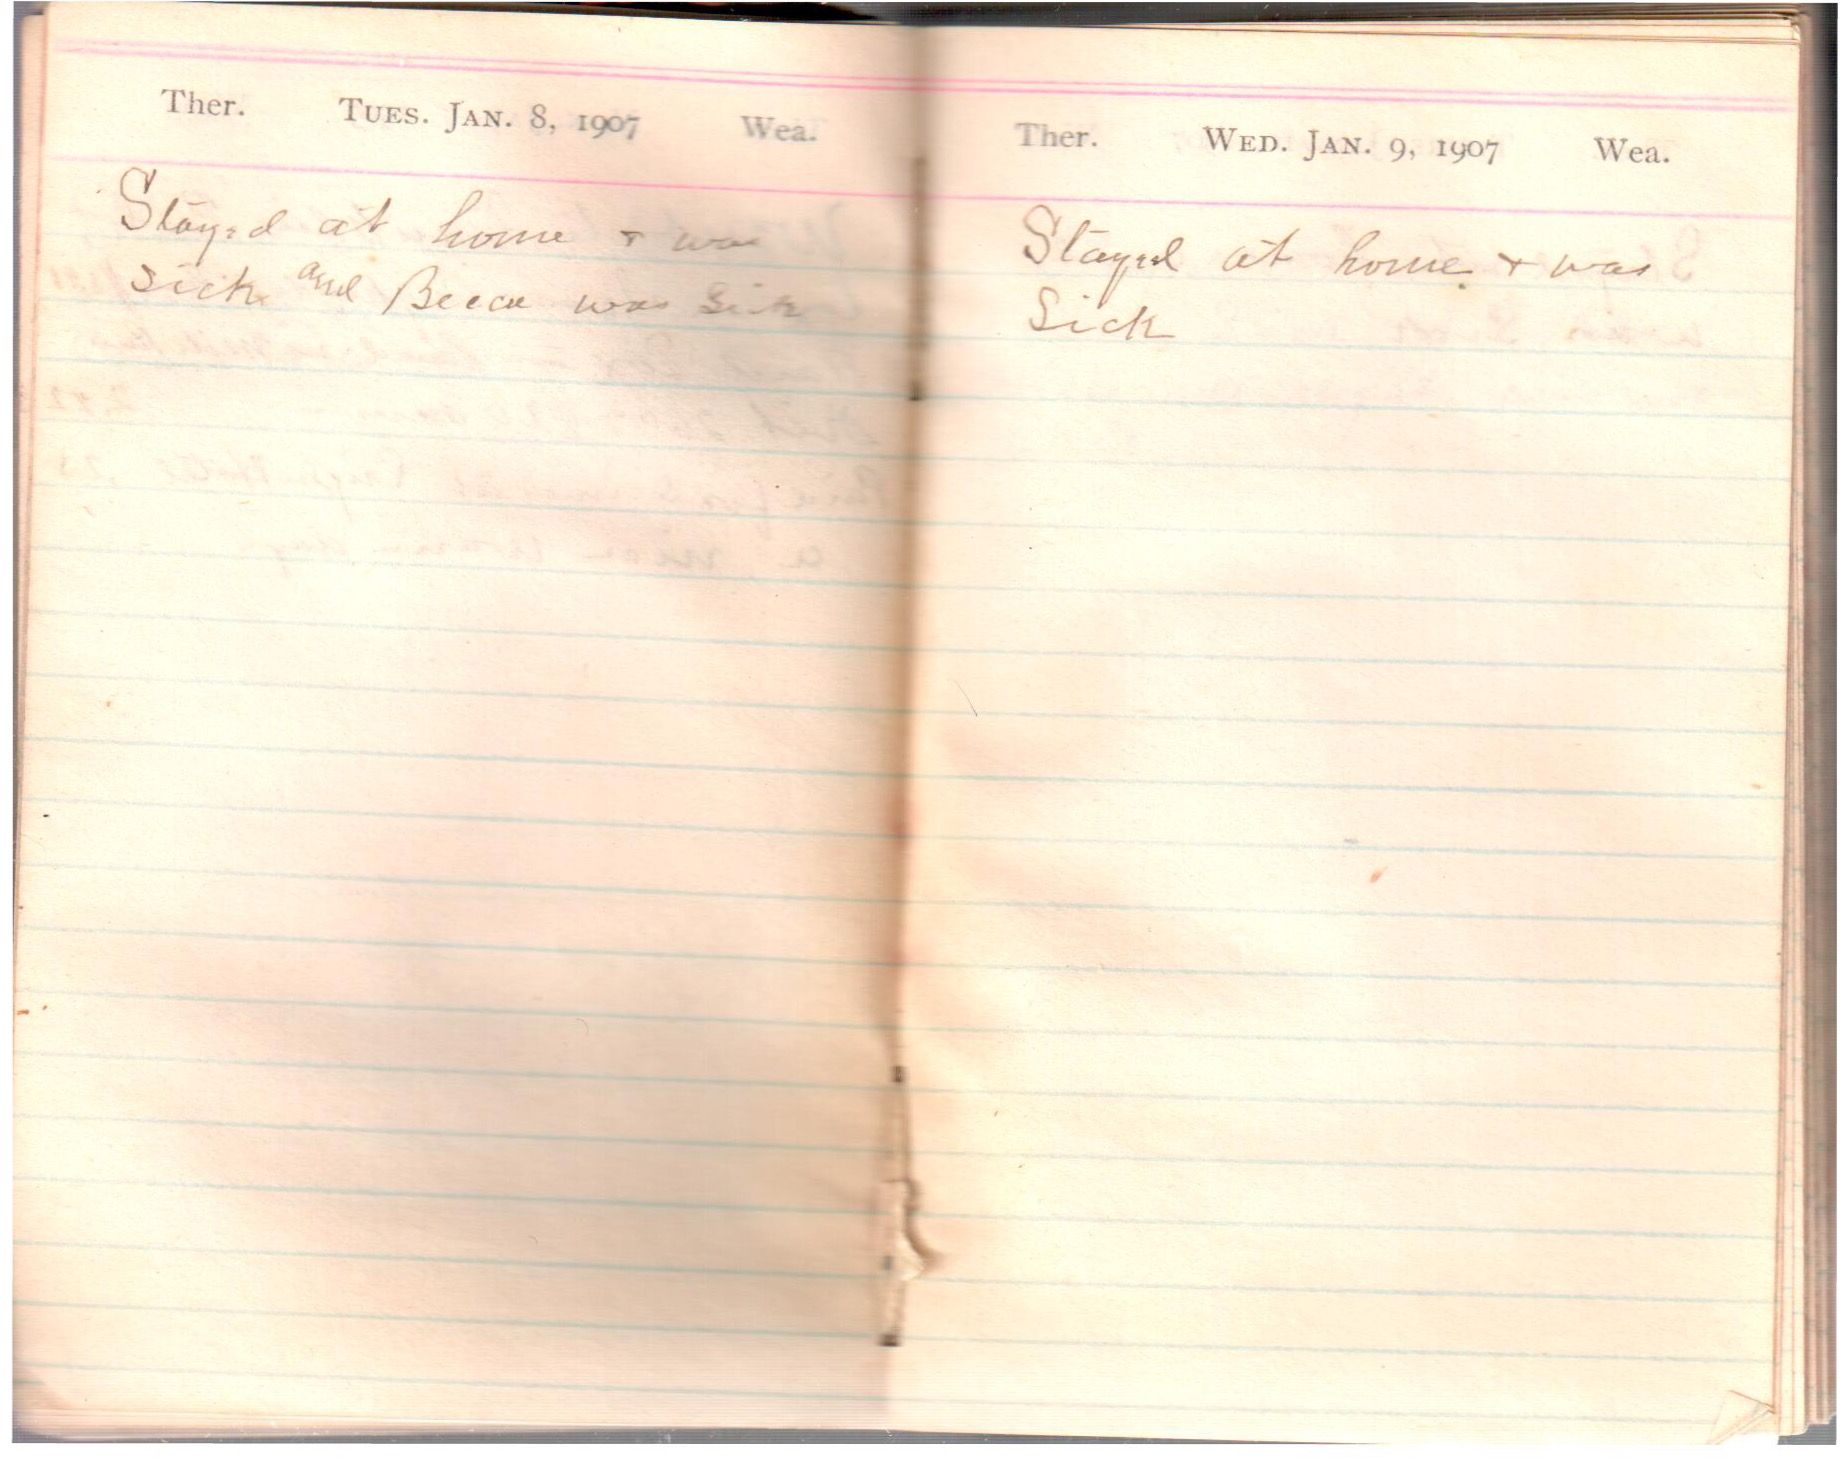 Ther. TUES. JAN. 8, 1907 Wea.
Stayed at home + was
sick and Becca was Sick
Ther. WED. JAN. 9, 1907 Wea.
Stayed at home + was
Sick